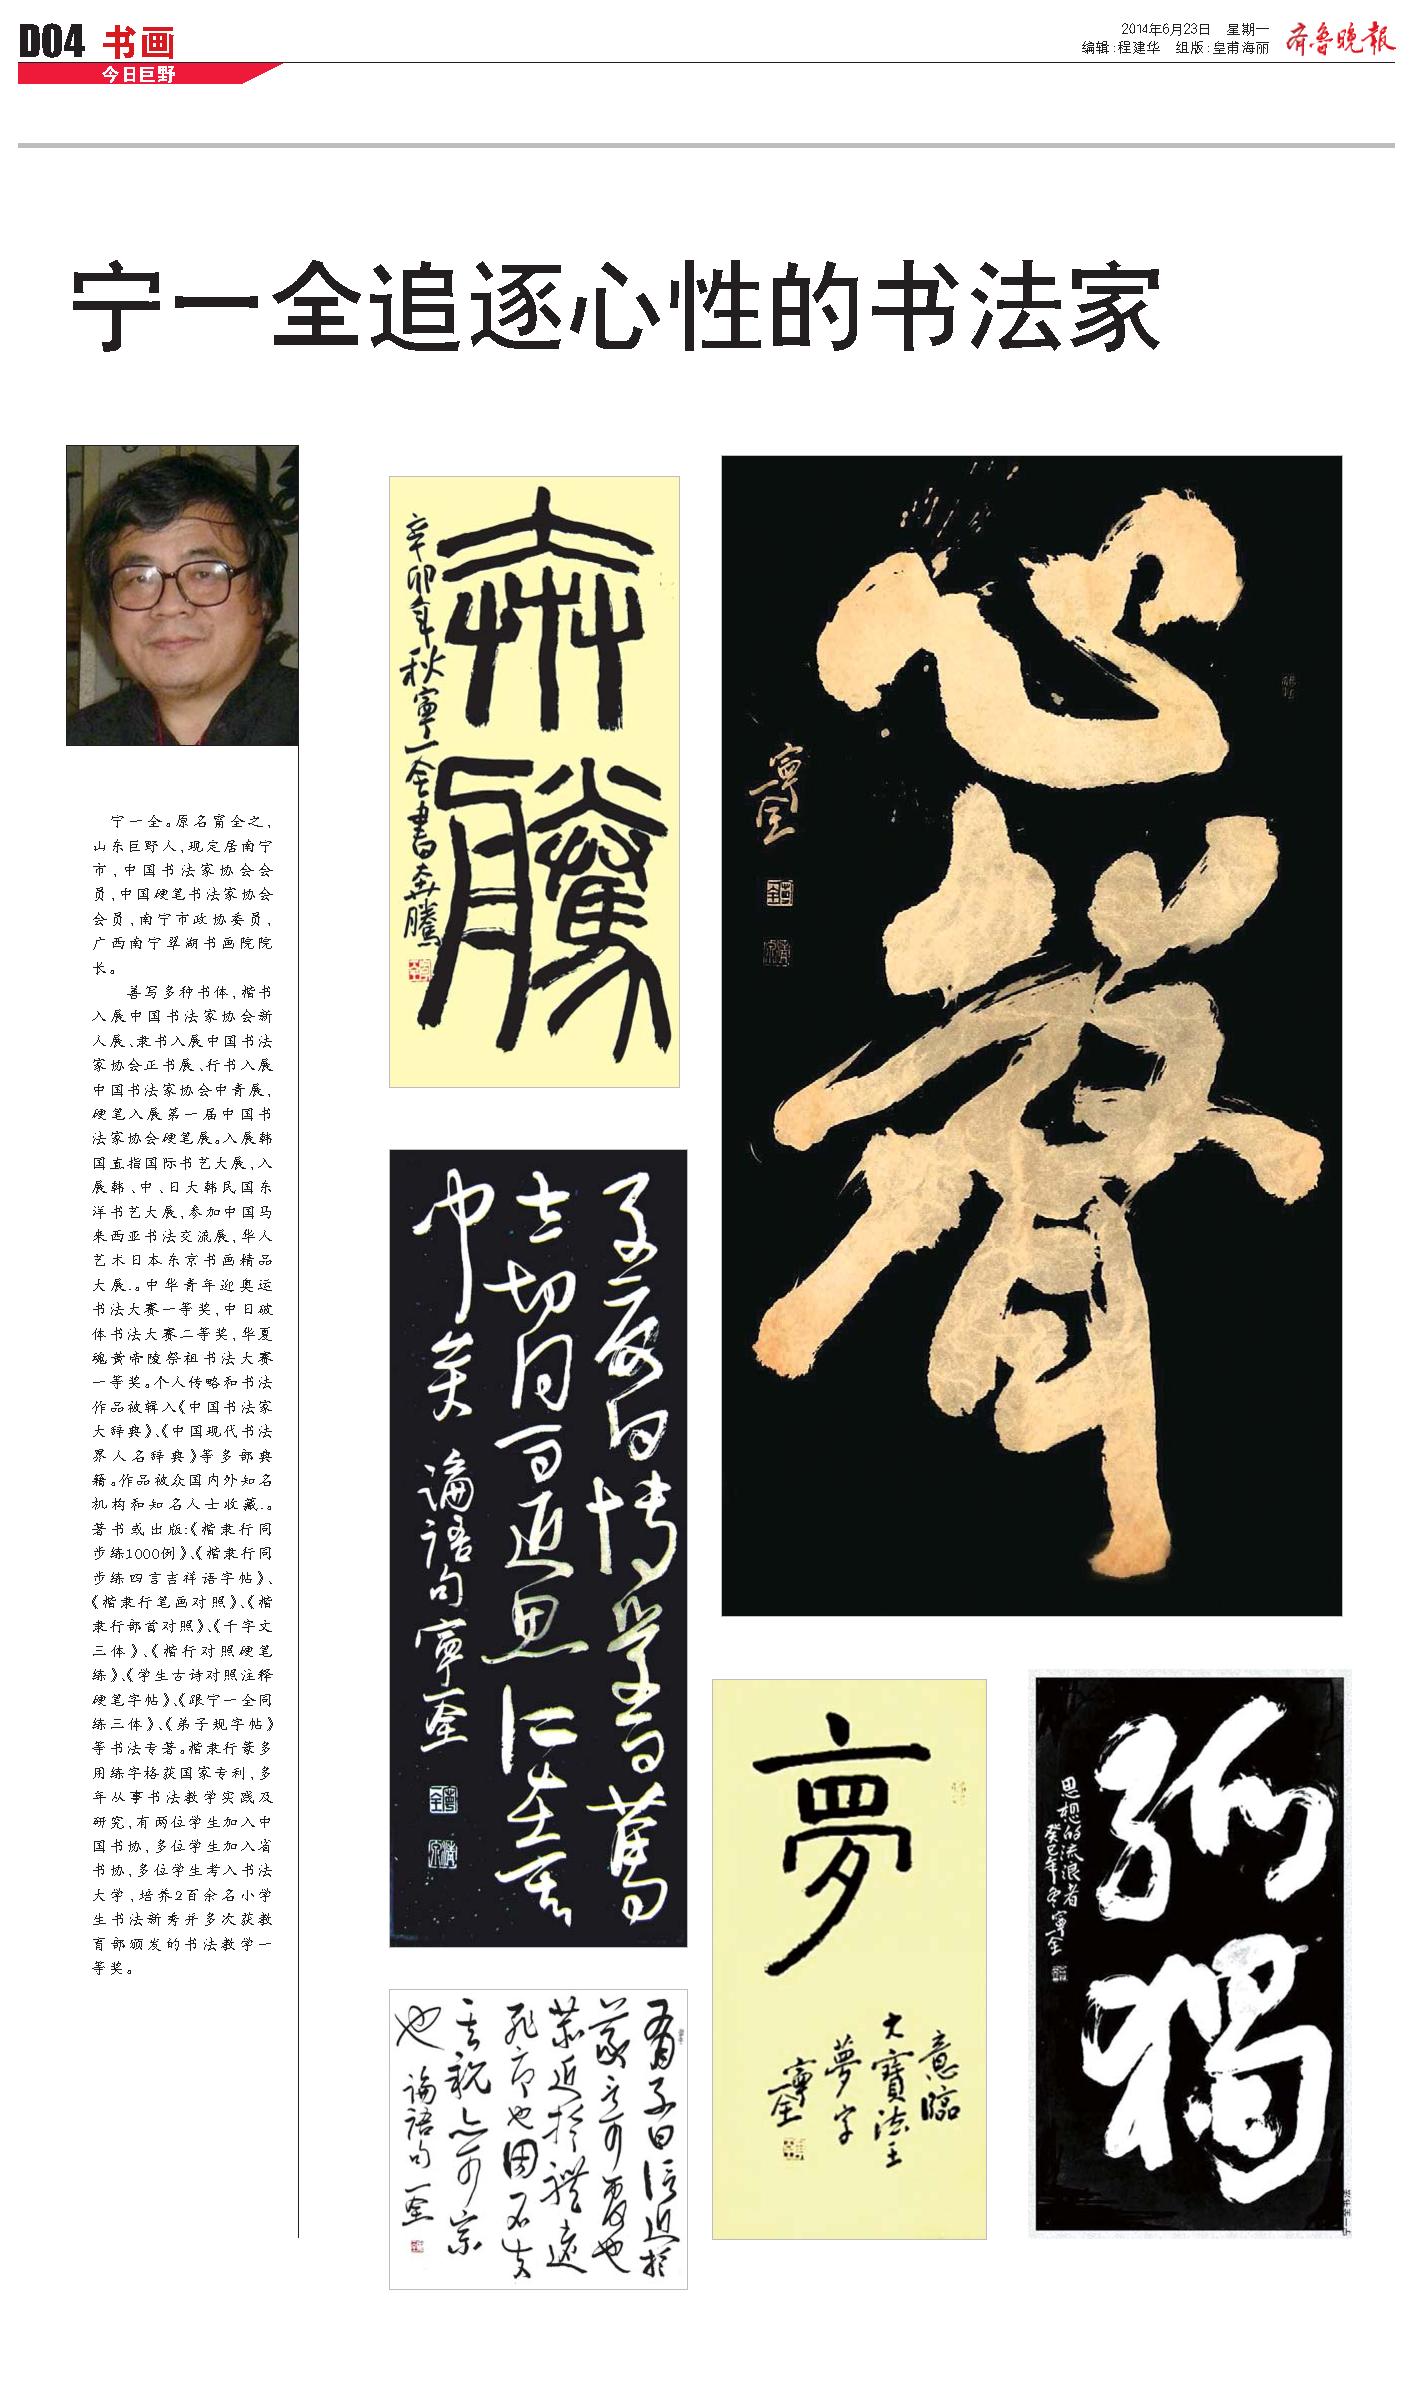 D04 书画
今日巨野
2014年6月23日 星期一
编辑:程建华 组版:皇甫海丽
齐鲁晚报
宁一全追逐心性的书法家
宁一全。原名甯全之,
山东巨野人,现定居南宁
市,中国书法家协会会
员,中国硬笔书法家协会
会员,南宁市政协委员,
广西南宁翠湖书画院院
长。
善写多种书体,楷书
入展中国书法家协会新
人展、隶书入展中国书法
家协会正书展、行书入展
中国书法家协会中青展,
硬笔入展第一届中国书
法家协会硬笔展。入展韩
国直指国际书艺大展,入
展韩、中、日大韩民国东
洋书艺大展,参加中国马
来西亚书法交流展,华人
艺术日本东京书画精品
大展.。中华青年迎奥运
书法大赛一等奖,中日破
体书法大赛二等奖,华夏
魂黄帝陵祭祖书法大赛
一等奖。个人传略和书法
作品被辑入《中国书法家
大辞典》、《中国现代书法
界人名辞典》等多部典
籍。作品被众国内外知名
机构和知名人士收藏.。
著书或出版:《楷隶行同
步练1000例》、《楷隶行同
步练四言吉祥语字帖》、
《楷隶行笔画对照》、《楷
隶行部首对照》、《千字文
三体》、《楷行对照硬笔
练》、《学生古诗对照注释
硬笔字帖》、《跟宁一全同
练三体》、《弟子规字帖》
等书法专著。楷隶行篆多
用练字格获国家专利,多
年从事书法教学实践及
研究,有两位学生加入中
国书协,多位学生加入省
书协,多位学生考入书法
大学,培养2百余名小学
生书法新秀并多次获教
育部颁发的书法教学一
等奖。
奔騰
辛卯年秋寧一全書奔騰
心声
寧一全
子夏曰博学而篤
志切问而近思仁在其
中矣 論語句寧一全
有子曰信近於
義言可覆也
恭近於禮遠
耻辱也因不失
其親亦可宗
也 論語句 一全
夢
意臨
大寶法王
夢字
寧一全
孤獨
思想的流浪者
癸巳年冬寧一全
宁一全书法